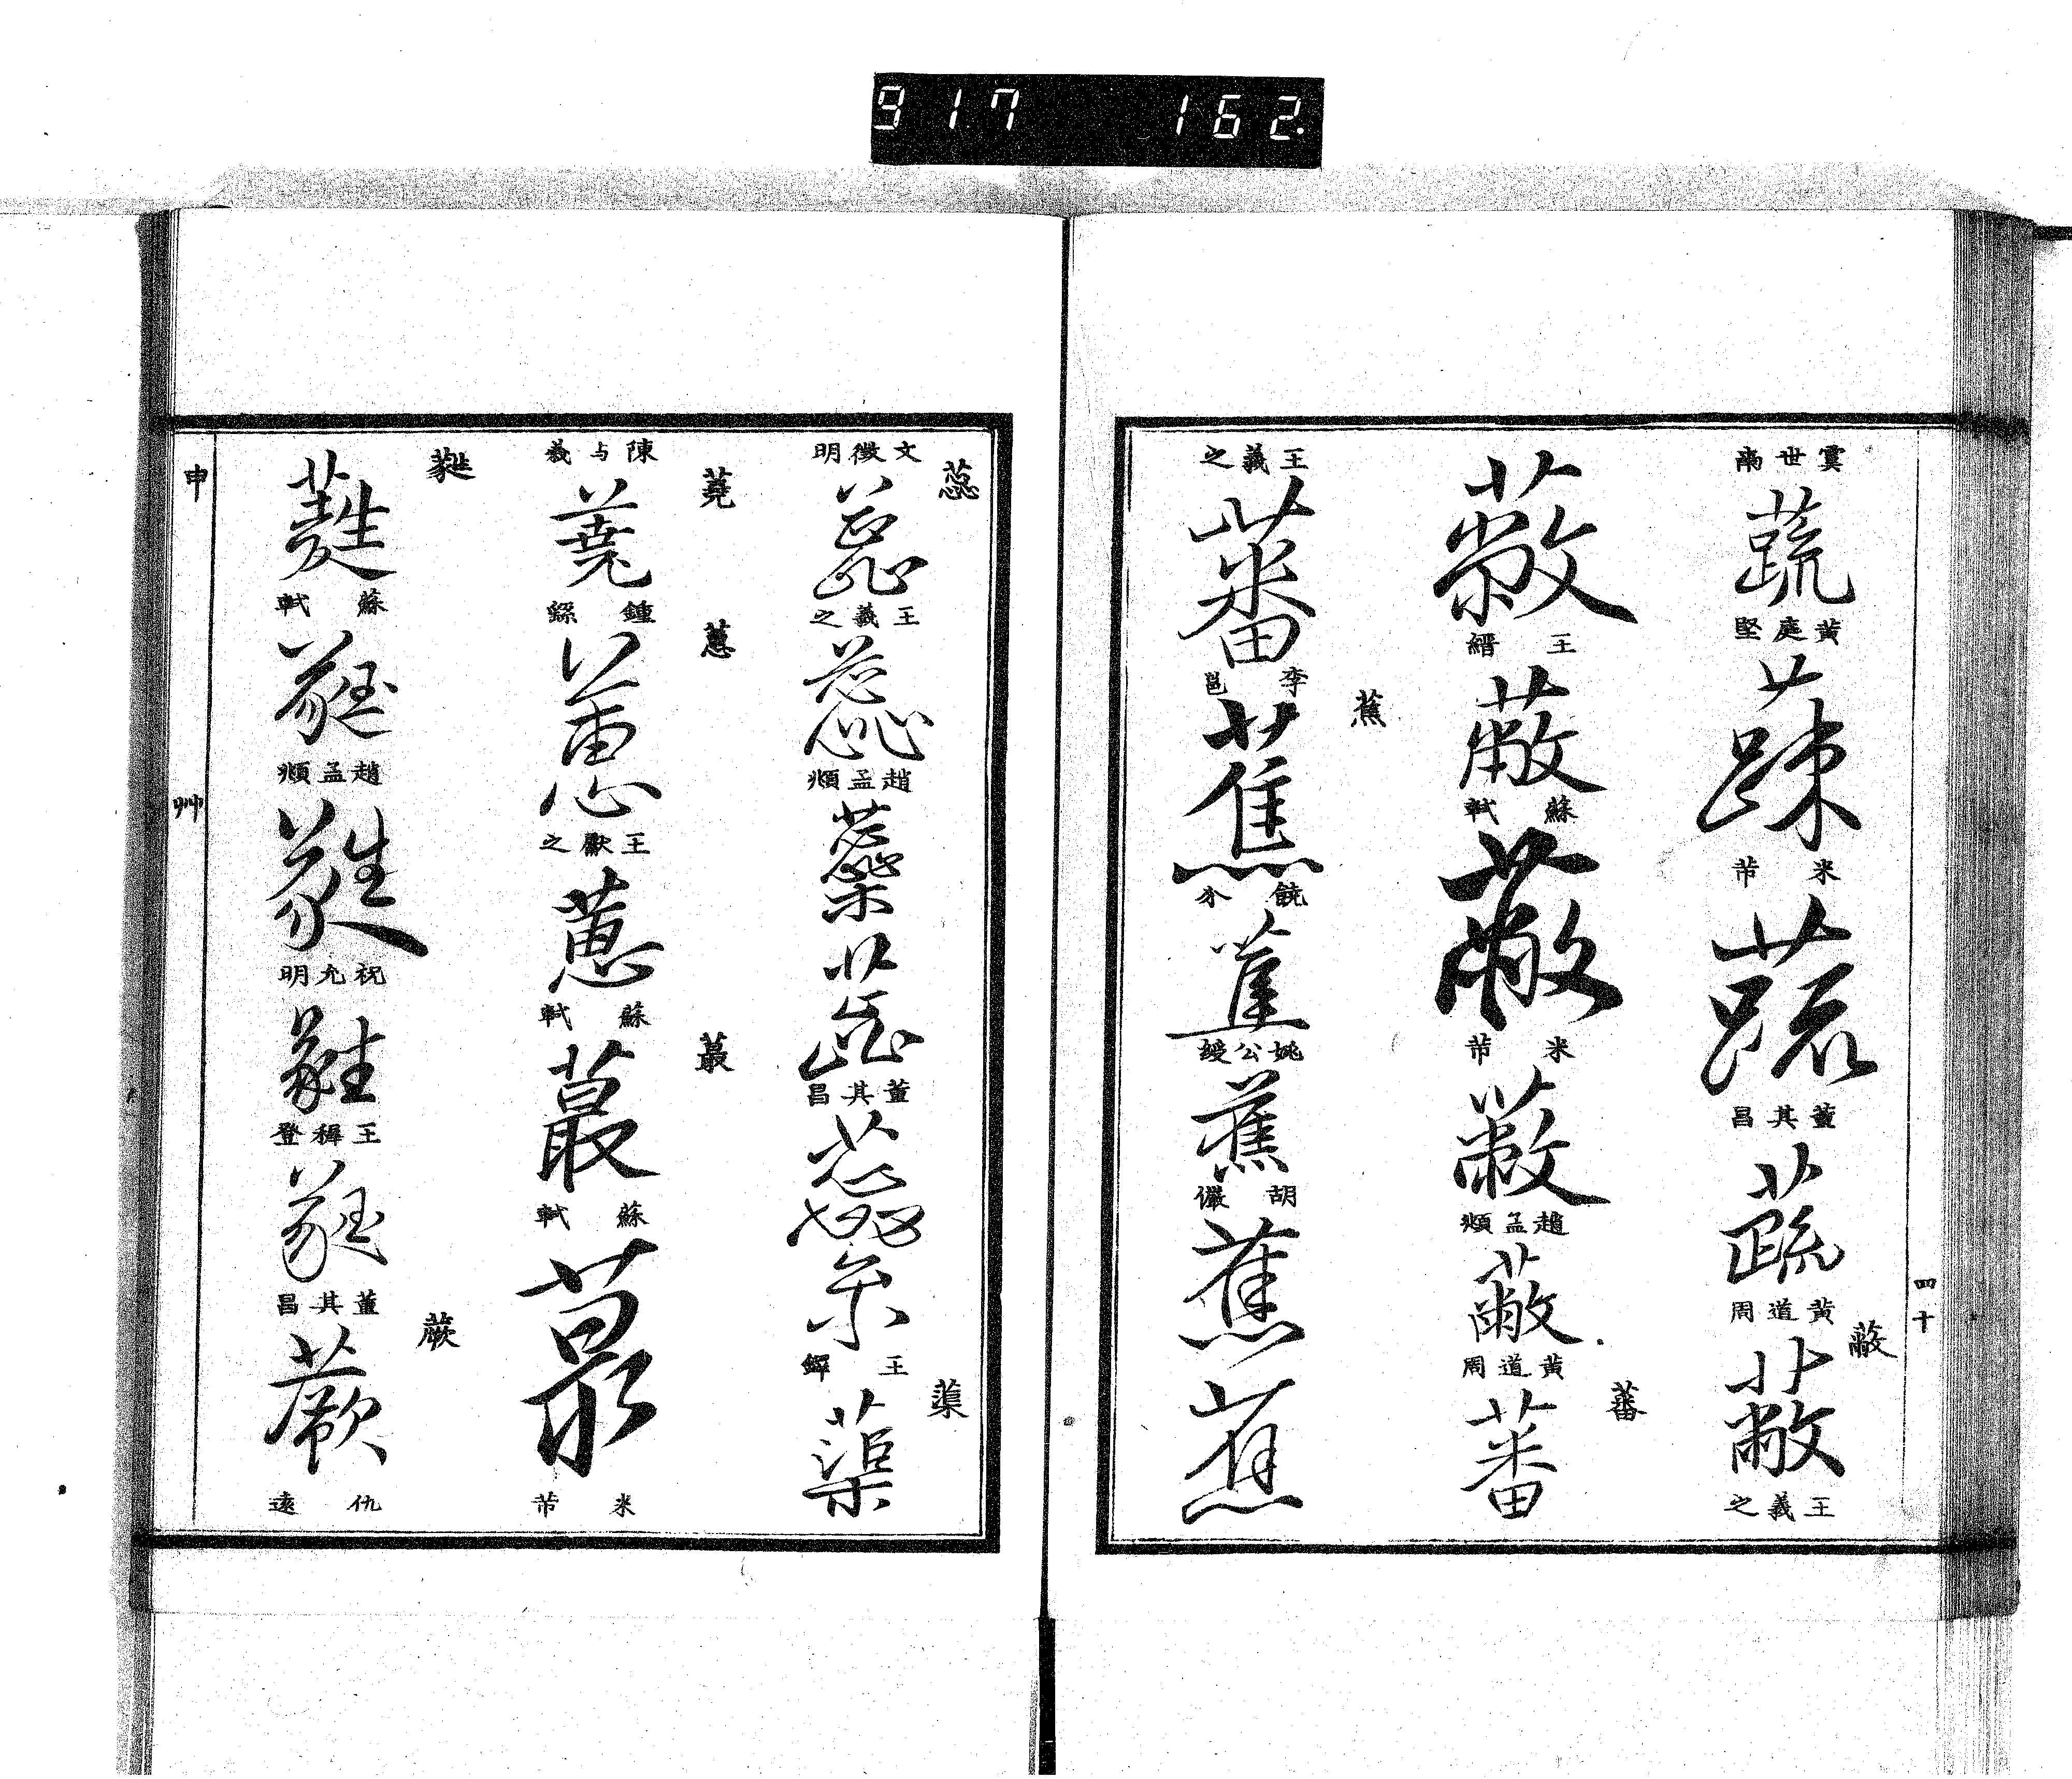 917 162.
四十
虞世南
蔬
黄庭堅
蔬
米芾
蔬
董其昌
蔬
黄道周
蔽
蔽
王羲之
蔽
王縉
蔽
蘇軾
蔽
米芾
蔽
趙孟頫
蔽
黄道周
蕃
蕃
王羲之
蕃
李邕
蕉
蕉
饒介
蕉
姚公綬
蕉
胡儼
蕉
蕉
蕊
文徵明
蕊
王羲之
蕊
趙孟頫
蕊
蕊
董其昌
蕊
王鐸
蕖
蕖
蕘
陳与義
蕘
鍾繇
蕙
蕙
王獻之
蕙
蘇軾
蕞
蕞
蘇軾
蕞
米芾
蕤
蕤
蘇軾
蕤
趙孟頫
蕤
祝允明
蕤
王穉登
蕤
董其昌
蕨
蕨
仇遠
申
艸